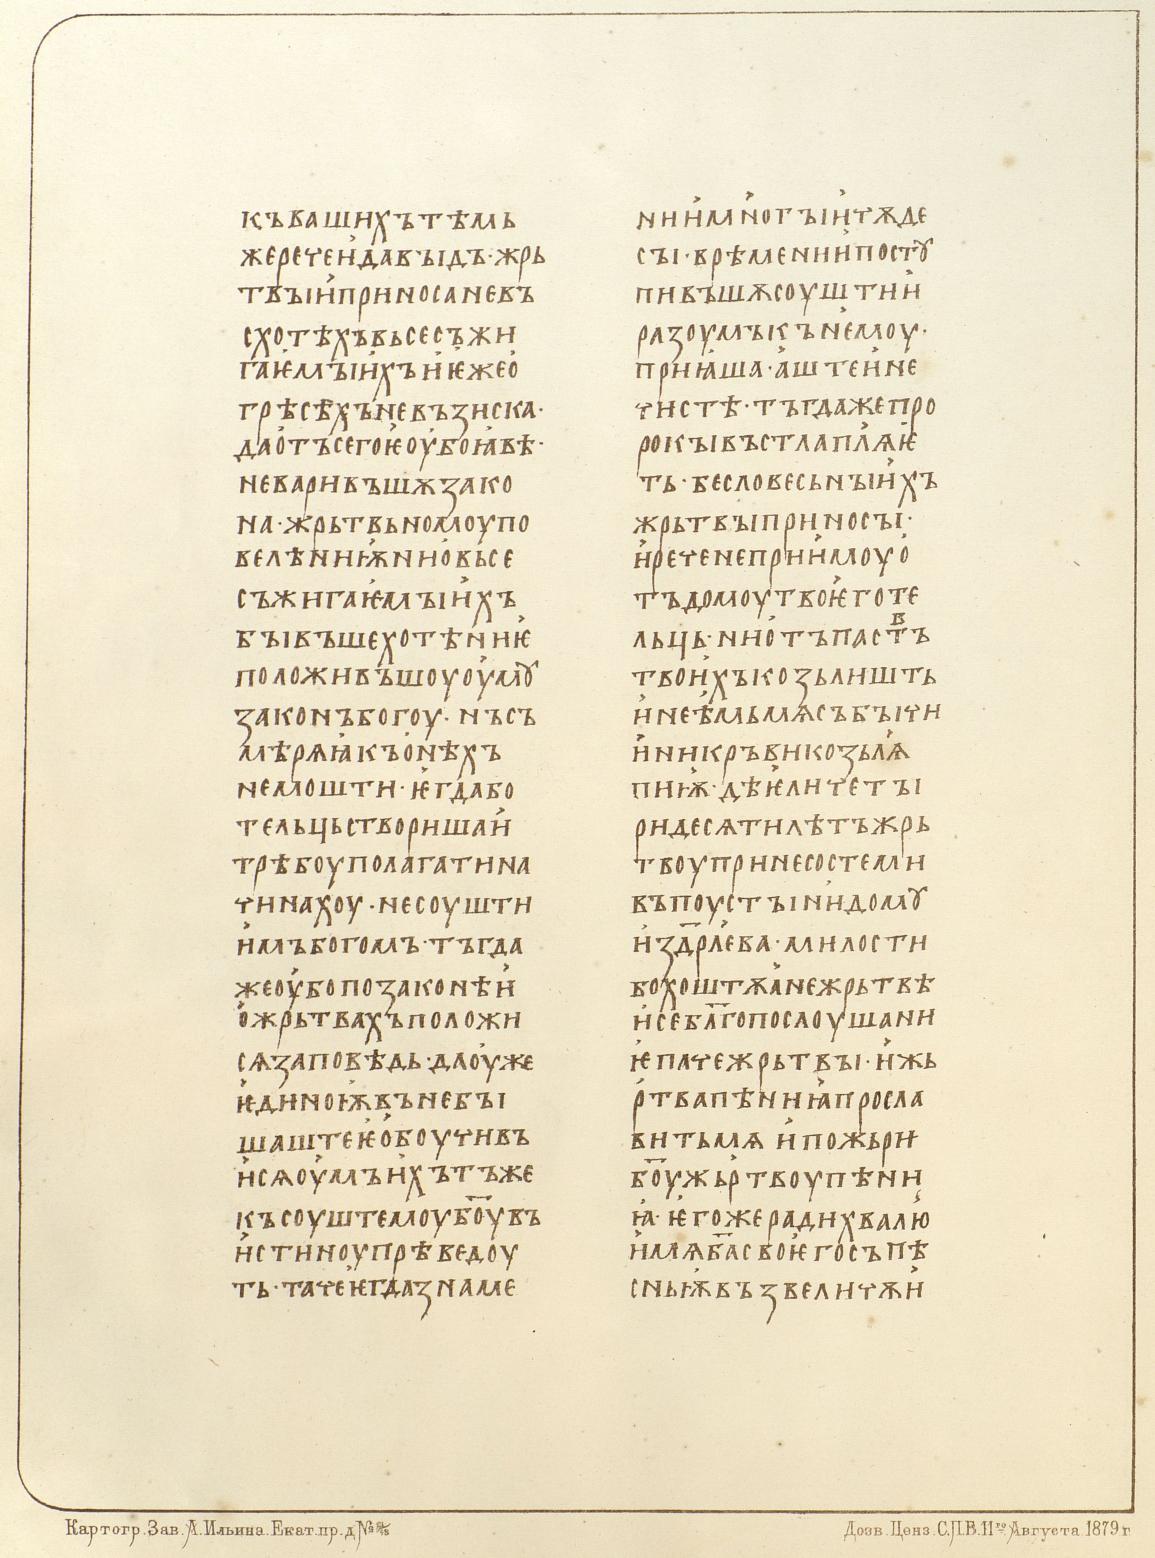 къвашихътѣмь
жереченд҆авъıдъ·жрь
твъıи҆приносаневъ
схотѣхъвьсесъжи
гаѥ҆мъıи҆хъи҆ѥ҆жео҆
грѣсѣхъневъзиска·
дао҆тъсегоѥ҆оу҆боꙗ҆вѣ·
неваривъшѫзако
на·жрьтвьномоупо
велѣниѭ҆нио҆вьсе
съжигаѥ҆мъıи҆хъ
бъıвъшехотѣниѥ҆
положивъшоуоу҆мꙋ
законъбогоу·нъсъ
мѣрѧꙗ҆къо҆нѣхъ
немошти·ѥ҆гдабо
тельцьсторишаи҆
трѣбоуполагатина
чинахоу·несоушти
и҆мъбогомъ·тъгда
жеоу҆бопозаконѣи҆
о҆жрьтвахъположи
сѧзаповѣдь·даоу҆же
ѥ҆диноѭ҆въневъı
шаштеѥ҆о҆боучивъ
и҆сѧоу҆мъи҆хътъже
късоуштемоубо҃увъ
и҆стиноупрѣведоу
ть·тачеѥ҆гдазнаме
нии҆мн҆огъıи҆чѫде
съı·врѣмении҆постꙋ
пивъшѫсоуштии҆
разоумъкън҆емоу·
приꙗ҆ша·а҆штеи҆не
чистѣ·тъгдажепро
рокъıвъстлапл҆ѧѥ҆
ть·бесловесьнъıи҆хъ
жрьтвъıприносъı·
и҆реченеприи҆моуо҆
тъдомоутвоѥ҆готе
льць·нио҆тъпаствъ
твои҆хъкозьлишть
и҆неѣ҆мьмѧсъбъıчи
и҆никръвикозьлѧ
пиѭ҆·дѣѥ҆личетъı
ридесѧтилѣтъжрь
твоупринесостеми
въпоустъıнид҆омꙋ
и҆здр҃лева·милости
бохоштѫа҆нежрьтвѣ
и҆себлг҃опослоушани
ѥ҆пачежрьтвъı·и҆жь
ртвапѣниꙗ҆просла
витьмѧи҆пожьри
бо҃ужьртвоупѣни
ꙗ҆·ѥ҆гожерадихвалю҆
и҆мѧба҃своѥ҆госъпѣ
сньѭ҆възвеличѫи҆
Картогр. Зав. А. Ильина. Екат. пр. д. №
Дозв. Ценз. С.П.Б. 11го Августа 1879 г.